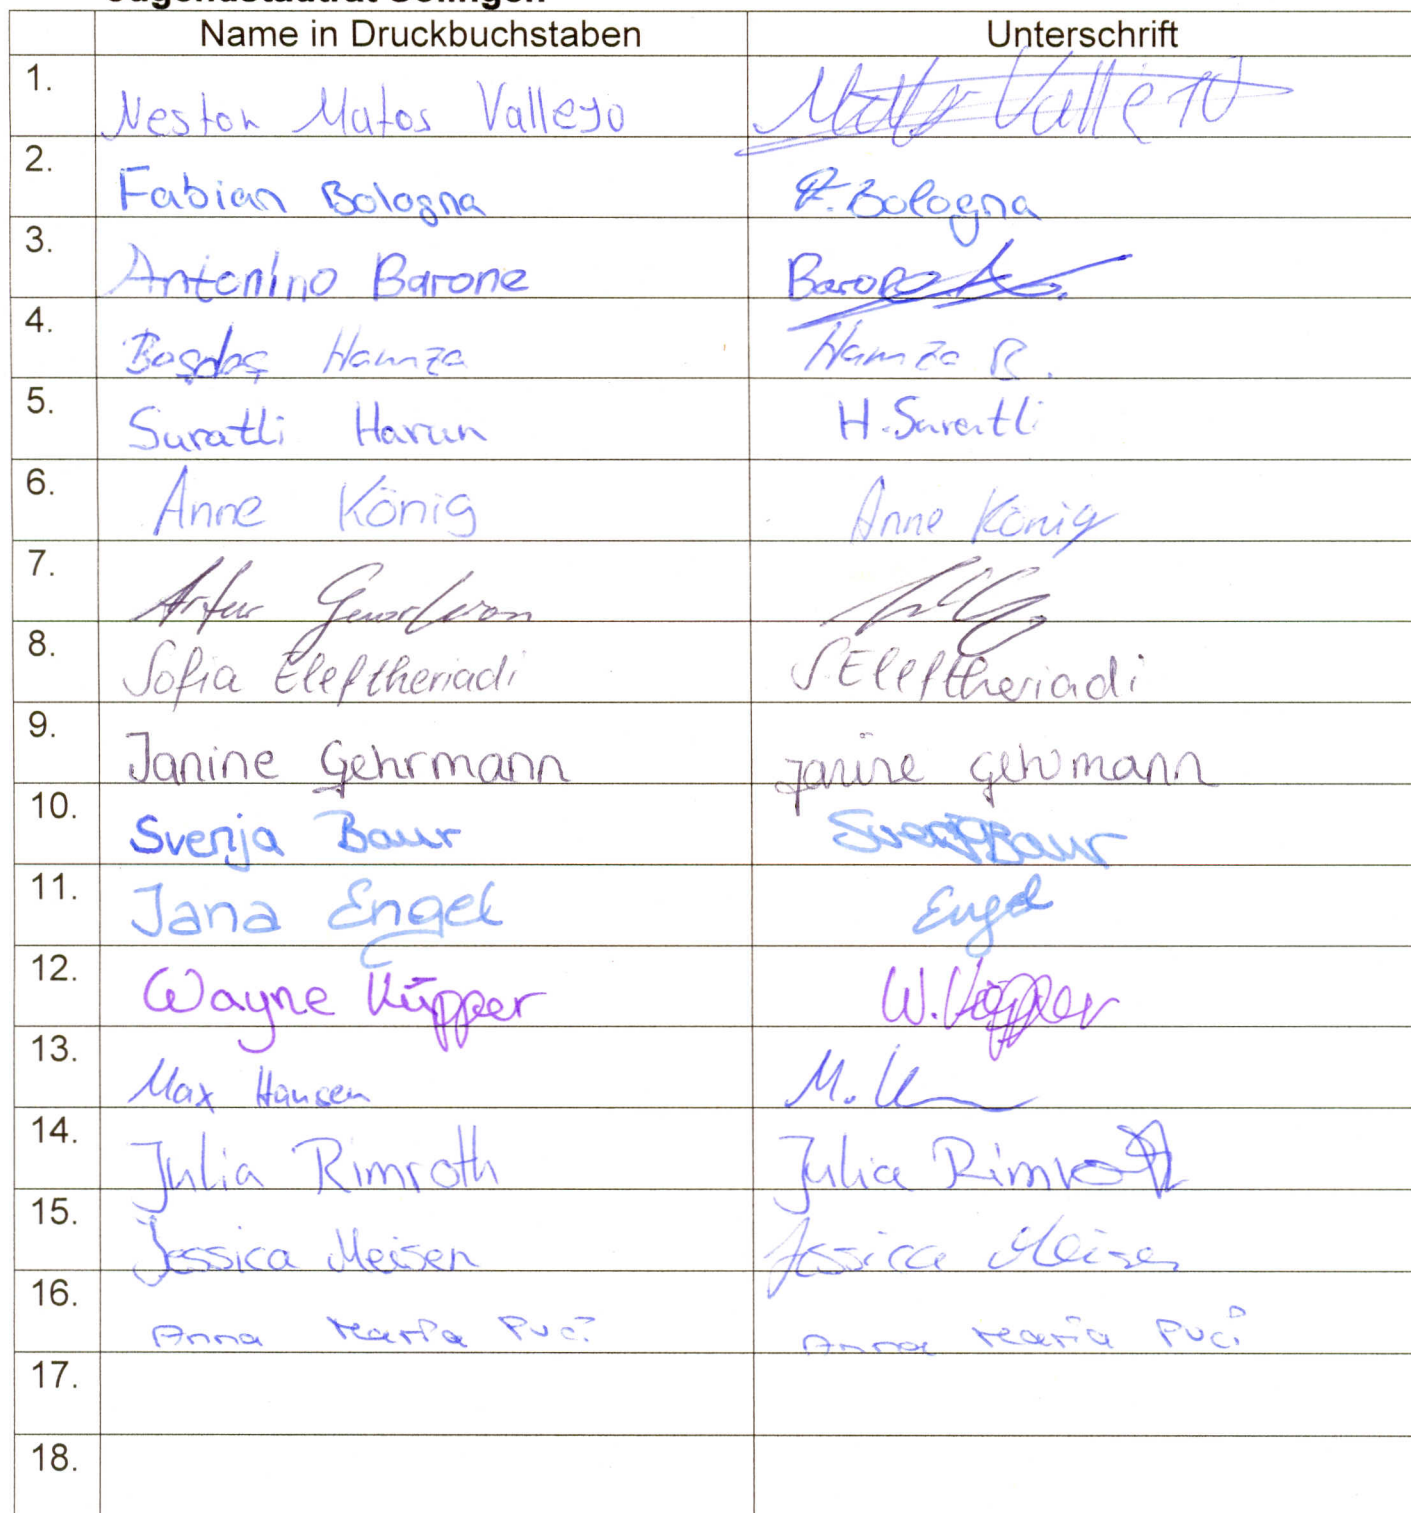 Jugendstadtrat Solingen
Name in Druckbuchstaben Unterschrift
1. Neston Matos Valleyo Matos Vallejo
2. Fabian Bologna F. Bologna
3. Antonino Barone Barone A.
4. Boşdaş Hamza Hamza B.
5. Suratli Harun H. Suratli
6. Anne König Anne König
7. Artur
8. Sofia Eleftheriadi S. Eleftheriadi
9. Janine Gehrmann Janine Gehrmann
10. Svenja Baur Svenja Baur
11. Jana Engel Engel
12. Wayne Küpper W. Küpper
13. Max Hansen M.
14. Julia Rimroth Julia Rimroth
15. Jessica Meisen Jessica Meisen
16. Anna Maria Puci Anna Maria Puci
17.
18.